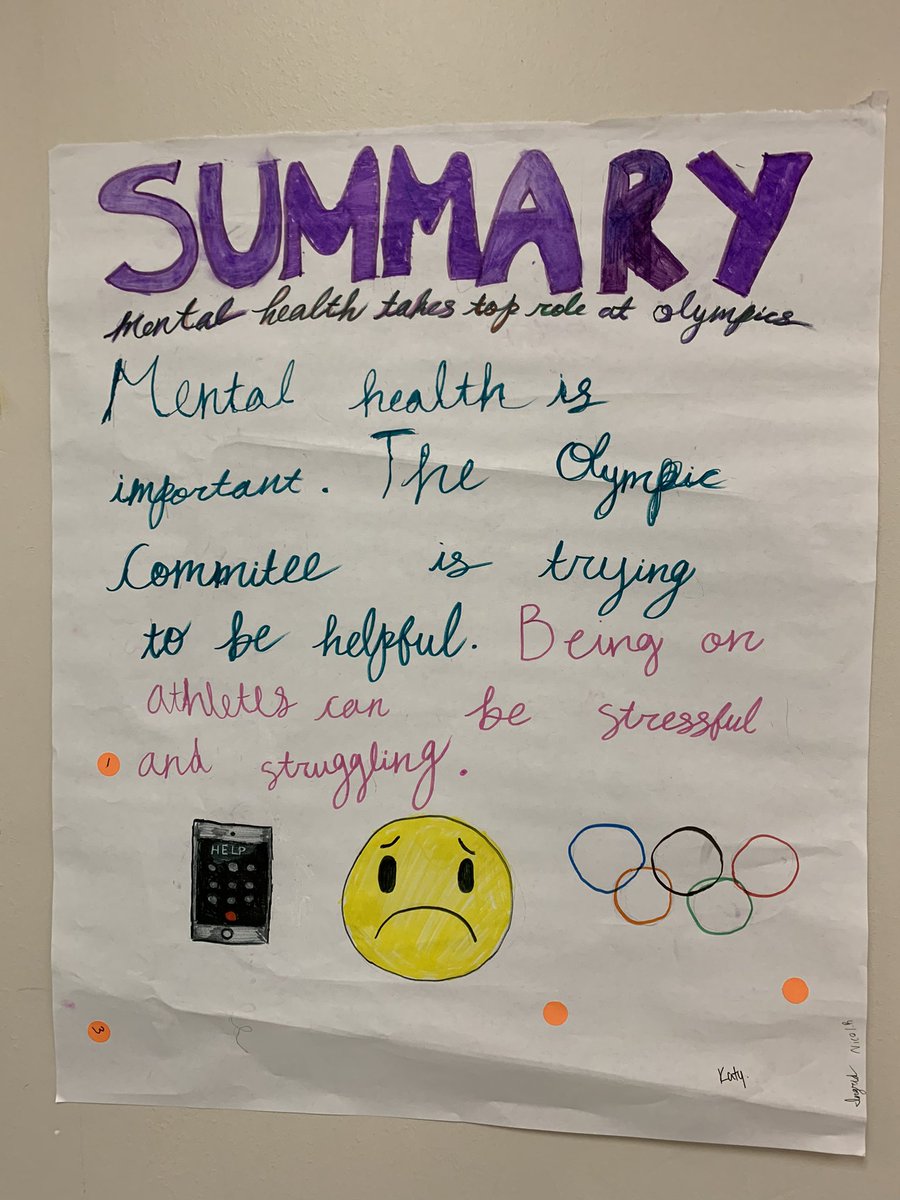 SUMMARY
Mental health takes top role at olympics
Mental health is
important. The Olympic
Commitee is trying
to be helpful. Being on
athletes can be stressful
1 and struggling.
HELP
3
Katy.
Ingrid Nicol